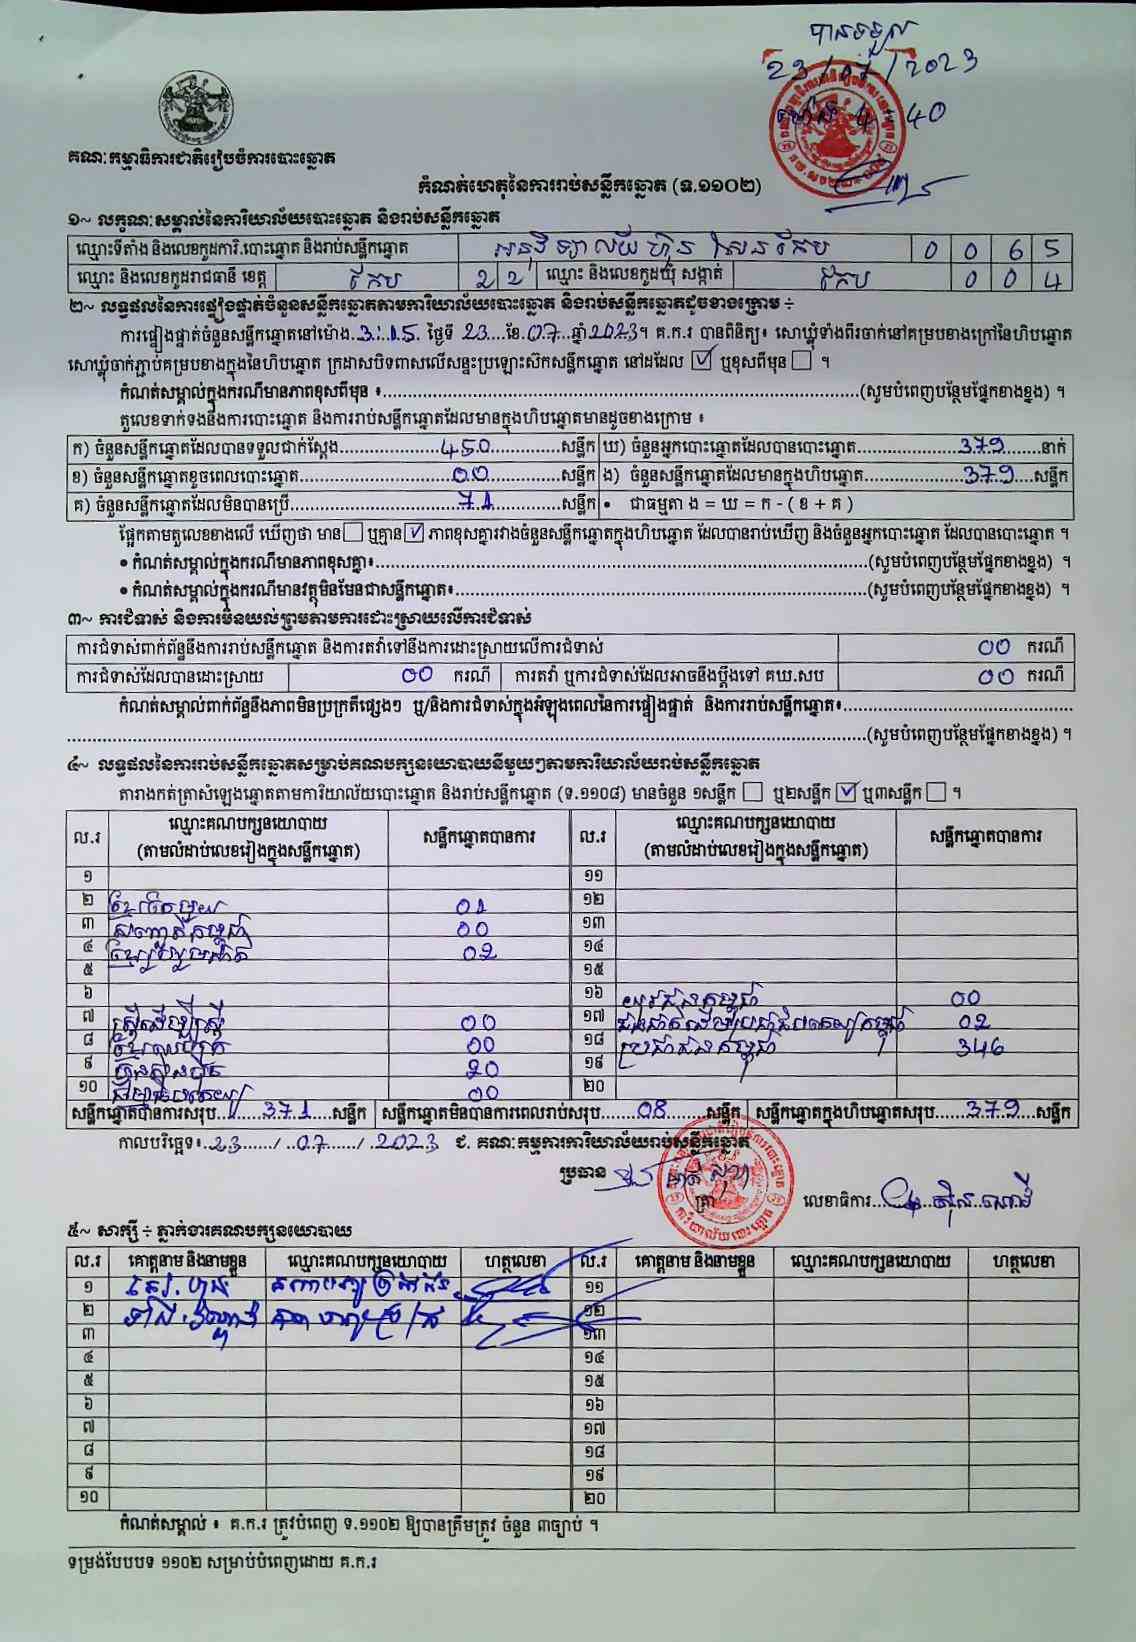 បានទទួល
23/07/2023
ម៉ោង 4 40
គណៈកម្មាធិការជាតិរៀបចំការបោះឆ្នោត
កំណត់ហេតុនៃការរាប់សន្លឹកឆ្នោត (ទ.១១០២)
១~ លក្ខណៈសម្គាល់នៃការិយាល័យបោះឆ្នោត និងរាប់សន្លឹកឆ្នោត
ឈ្មោះទីតាំង និងលេខកូដការិ.បោះឆ្នោត និងរាប់សន្លឹកឆ្នោត អនុវិទ្យាល័យ ហ៊ុន សែន កែប 0 0 6 5
ឈ្មោះ និងលេខកូដរាជធានី ខេត្ត កែប 2 2 ឈ្មោះ និងលេខកូដឃុំ សង្កាត់ កែប 0 0 4
២~ លទ្ធផលនៃការផ្ទៀងផ្ទាត់ចំនួនសន្លឹកឆ្នោតតាមការិយាល័យបោះឆ្នោត និងរាប់សន្លឹកឆ្នោតដូចខាងក្រោម ÷
ការផ្ទៀងផ្ទាត់ចំនួនសន្លឹកឆ្នោតនៅម៉ោង 3:15 ថ្ងៃទី 23 ខែ 07 ឆ្នាំ 2023។ គ.ក.រ បានពិនិត្យ៖ សោឃ្លុំទាំងពីរចាក់នៅគម្របខាងក្រៅនៃហិបឆ្នោត
សោឃ្លុំចាក់ភ្ជាប់គម្របខាងក្នុងនៃហិបឆ្នោត ក្រដាសបិទពាសលើសន្ទះប្រឡោះស៊កសន្លឹកឆ្នោត នៅដដែល ☑ ឬខុសពីមុន ☐ ។
កំណត់សម្គាល់ក្នុងករណីមានភាពខុសពីមុន ៖ (សូមបំពេញបន្ថែមផ្នែកខាងខ្នង) ។
តួលេខទាក់ទងនឹងការបោះឆ្នោត និងការរាប់សន្លឹកឆ្នោតដែលមានក្នុងហិបឆ្នោតមានដូចខាងក្រោម ៖
ក) ចំនួនសន្លឹកឆ្នោតដែលបានទទួលជាក់ស្តែង 450 សន្លឹក ឃ) ចំនួនអ្នកបោះឆ្នោតដែលបានបោះឆ្នោត 379 នាក់
ខ) ចំនួនសន្លឹកឆ្នោតខូចពេលបោះឆ្នោត 00 សន្លឹក ង) ចំនួនសន្លឹកឆ្នោតដែលមានក្នុងហិបឆ្នោត 379 សន្លឹក
គ) ចំនួនសន្លឹកឆ្នោតដែលមិនបានប្រើ 71 សន្លឹក • ជាធម្មតា ង = ឃ = ក - ( ខ + គ )
ផ្អែកតាមតួលេខខាងលើ ឃើញថា មាន ☐ ឬគ្មាន ☑ ភាពខុសគ្នារវាងចំនួនសន្លឹកឆ្នោតក្នុងហិបឆ្នោត ដែលបានរាប់ឃើញ និងចំនួនអ្នកបោះឆ្នោត ដែលបានបោះឆ្នោត ។
• កំណត់សម្គាល់ក្នុងករណីមានភាពខុសគ្នា៖ (សូមបំពេញបន្ថែមផ្នែកខាងខ្នង) ។
• កំណត់សម្គាល់ក្នុងករណីមានវត្ថុមិនមែនជាសន្លឹកឆ្នោត៖ (សូមបំពេញបន្ថែមផ្នែកខាងខ្នង) ។
៣~ ការជំទាស់ និងការមិនយល់ព្រមតាមការដោះស្រាយលើការជំទាស់
ការជំទាស់ពាក់ព័ន្ធនឹងការរាប់សន្លឹកឆ្នោត និងការតវ៉ាទៅនឹងការដោះស្រាយលើការជំទាស់ 00 ករណី
ការជំទាស់ដែលបានដោះស្រាយ 00 ករណី ការតវ៉ា ឬការជំទាស់ដែលអាចនឹងប្តឹងទៅ គឃ.សប 00 ករណី
កំណត់សម្គាល់ពាក់ព័ន្ធនឹងភាពមិនប្រក្រតីផ្សេងៗ ឬ/និងការជំទាស់ក្នុងអំឡុងពេលនៃការផ្ទៀងផ្ទាត់ និងការរាប់សន្លឹកឆ្នោត៖
(សូមបំពេញបន្ថែមផ្នែកខាងខ្នង) ។
៤~ លទ្ធផលនៃការរាប់សន្លឹកឆ្នោតសម្រាប់គណបក្សនយោបាយនីមួយៗតាមការិយាល័យរាប់សន្លឹកឆ្នោត
តារាងកត់ត្រាសំឡេងឆ្នោតតាមការិយាល័យបោះឆ្នោត និងរាប់សន្លឹកឆ្នោត (ទ.១១០៨) មានចំនួន ១សន្លឹក ☐ ឬ២សន្លឹក ☑ ឬ៣សន្លឹក ☐ ។
ល.រ ឈ្មោះគណបក្សនយោបាយ សន្លឹកឆ្នោតបានការ ល.រ ឈ្មោះគណបក្សនយោបាយ សន្លឹកឆ្នោតបានការ
(តាមលំដាប់លេខរៀងក្នុងសន្លឹកឆ្នោត) (តាមលំដាប់លេខរៀងក្នុងសន្លឹកឆ្នោត)
១ ១១
២ ខ្មែរតែមួយ 01 ១២
៣ សញ្ជាតិកម្ពុជា 00 ១៣
៤ ខ្មែររួបរួមជាតិ 02 ១៤
៥ ១៥
៦ ១៦ យុវជនកម្ពុជា 00
៧ ស្ត្រីដើម្បីស្ត្រី 00 ១៧ 02
៨ 00 ១៨ ប្រជាជនកម្ពុជា 346
៩ ហ៊្វុនស៊ិនប៉ិច 20 ១៩
១០ 00 ២០
សន្លឹកឆ្នោតបានការសរុប 371 សន្លឹក សន្លឹកឆ្នោតមិនបានការពេលរាប់សរុប 08 សន្លឹក សន្លឹកឆ្នោតក្នុងហិបឆ្នោតសរុប 379 សន្លឹក
កាលបរិច្ឆេទ៖ 23 / 07 / 2023 ជ. គណៈកម្មការការិយាល័យរាប់សន្លឹកឆ្នោត
ប្រធាន
ត្រា លេខាធិការ
៥~ សាក្សី ÷ ភ្នាក់ងារគណបក្សនយោបាយ
ល.រ គោត្តនាម និងនាមខ្លួន ឈ្មោះគណបក្សនយោបាយ ហត្ថលេខា ល.រ គោត្តនាម និងនាមខ្លួន ឈ្មោះគណបក្សនយោបាយ ហត្ថលេខា
១ ១១
២ ១២
៣ ១៣
៤ ១៤
៥ ១៥
៦ ១៦
៧ ១៧
៨ ១៨
៩ ១៩
១០ ២០
កំណត់សម្គាល់ ៖ គ.ក.រ ត្រូវបំពេញ ទ.១១០២ ឱ្យបានត្រឹមត្រូវ ចំនួន ៣ច្បាប់ ។
ទម្រង់បែបបទ ១១០២ សម្រាប់បំពេញដោយ គ.ក.រ